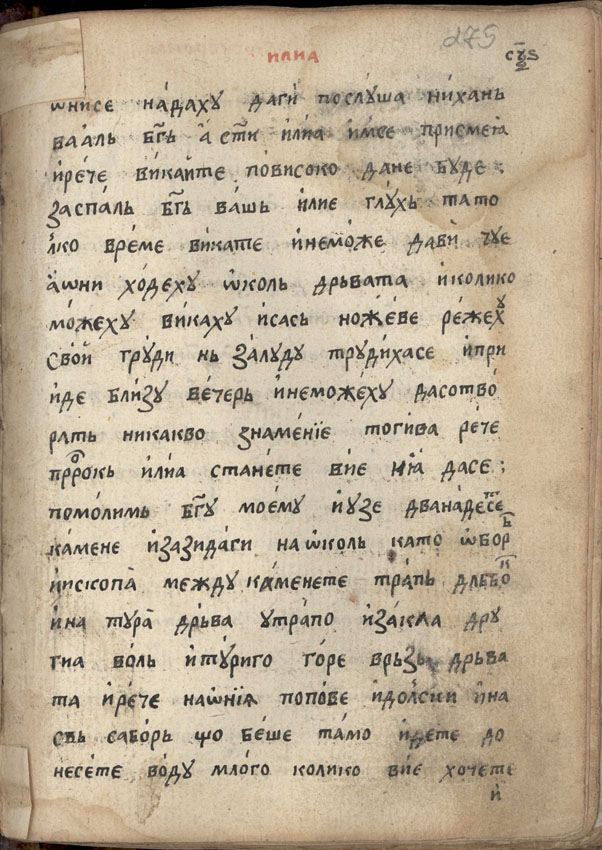 275
ИЛИА
сѹ҃ѕ
ѡнисе на́даху даги́ послу́ша ни́хань
ваа́ль бг҃ь а́ ст҃и илі́а и́мсе присмеѧ̀
и҆ре́че ви́каите пови́соко дане бу́де ;
заспа́ль бг҃ь ва́шь и́лие глу́хь тато
лко вре́ме ви́кате и҆немо́же дави̂ чуе
а҆ѡни хо́деху ѡ҆коль дрьвата и҆колико
мо́жеху ви́каху и҆сась ноже́ве ре́жеху
свои̂ гру́ди нь за́луду труди́хасе и҆при
и́де бли́зу ве́черь и҆немо́же́ху дасотво́
рать никакво знаме́нїе тоги́ва ре́че
прⷪ҇рокь илі́а стане́те ви́е нїа̀ дасе ;
помо́лимь бг҃у мое́му и҆узе двана́десⷮе
ка́мене и҆зазида́ги на ѡ҆коль като ѡ҆борь
и҆ископа̀ между ка́менете тра́пь дльбокь
и҆на тура̀ дрьва у тра́по и҆за́кла дру
гиа во́ль и҆ту́риго го́ре врьзь дрьва
та и҆ре́че на ѡ҆нїѧ попо́ве и҆до́лски и҆на
свь са́борь що бе́ше та́мо и҆де́те до
несе́те во́ду мло́го колико ви́е хо́чете
и҆